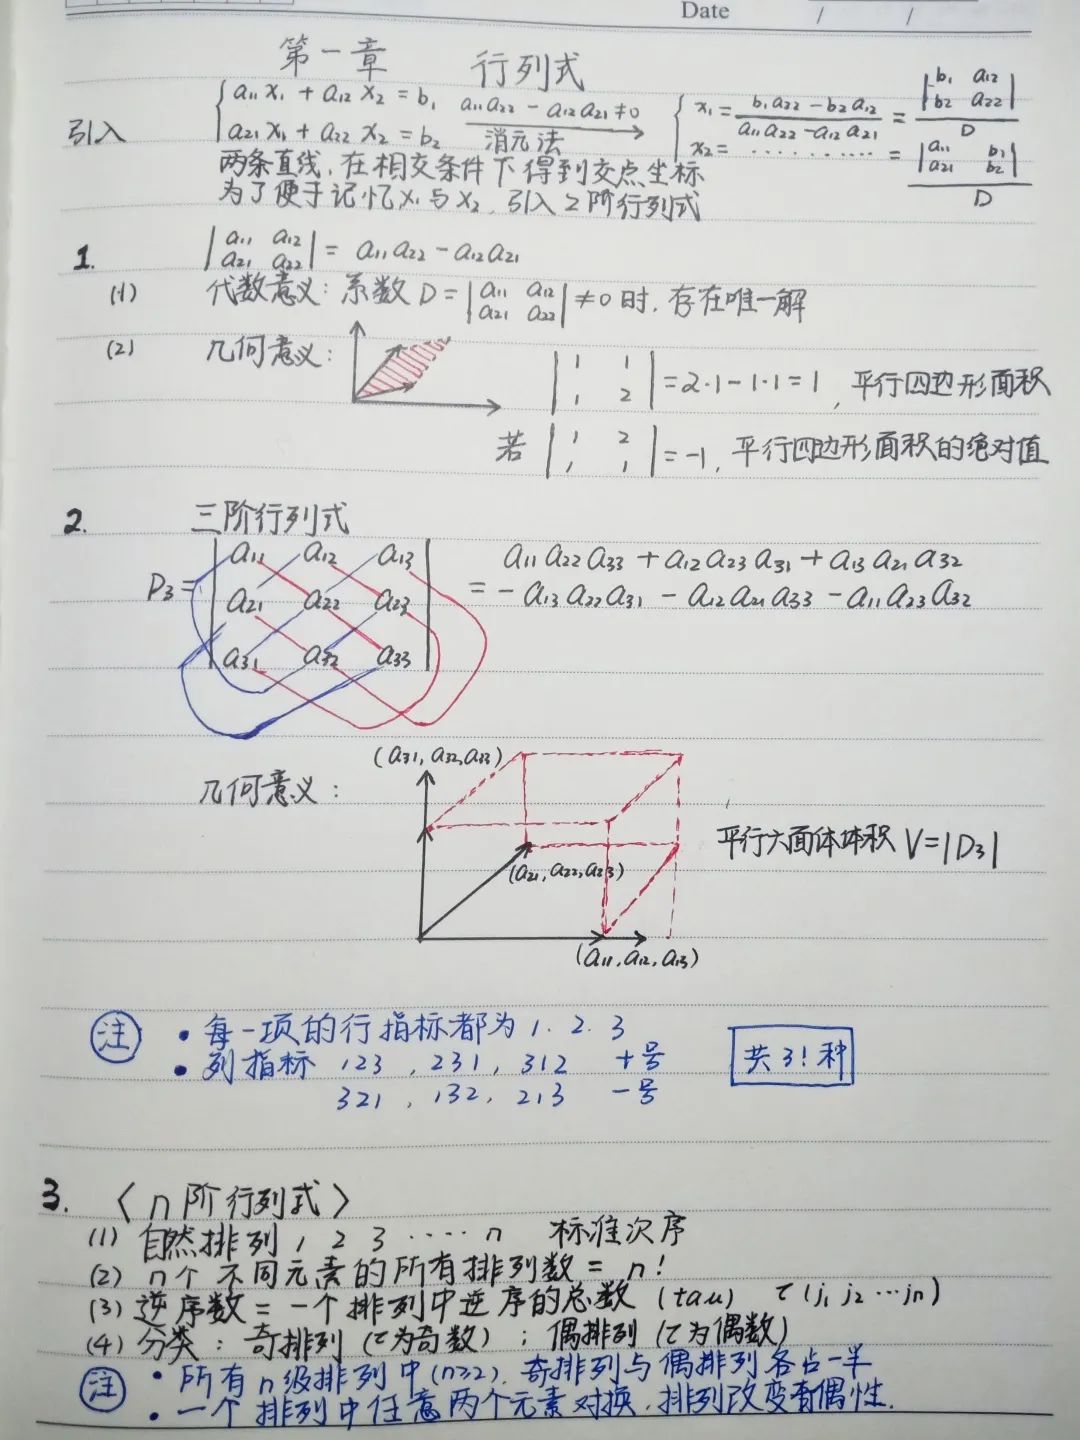 Date / /
第一章 行列式
引入 { a₁₁x₁ + a₁₂x₂ = b₁ a₁₁a₂₂ − a₁₂a₂₁ ≠ 0 { x₁ = (b₁a₂₂ − b₂a₁₂)/(a₁₁a₂₂ − a₁₂a₂₁) = |b₁ a₁₂; b₂ a₂₂|/D
a₂₁x₁ + a₂₂x₂ = b₂ 消元法 → x₂ = ・・・・・・・・・・ = |a₁₁ b₁; a₂₁ b₂|/D
两条直线,在相交条件下得到交点坐标
为了便于记忆x₁与x₂,引入2阶行列式
1. |a₁₁ a₁₂; a₂₁ a₂₂| = a₁₁a₂₂ − a₁₂a₂₁
(1) 代数意义:系数D = |a₁₁ a₁₂; a₂₁ a₂₂| ≠ 0时,存在唯一解
(2) 几何意义: |1 1; 1 2| = 2·1−1·1 = 1,平行四边形面积
若 |1 2; 1 1| = −1,平行四边形面积的绝对值
2. 三阶行列式
D₃ = |a₁₁ a₁₂ a₁₃; a₂₁ a₂₂ a₂₃; a₃₁ a₃₂ a₃₃| = a₁₁a₂₂a₃₃ + a₁₂a₂₃a₃₁ + a₁₃a₂₁a₃₂
− a₁₃a₂₂a₃₁ − a₁₂a₂₁a₃₃ − a₁₁a₂₃a₃₂
(a₃₁, a₃₂, a₃₃)
几何意义:
平行六面体体积 V = |D₃|
(a₂₁, a₂₂, a₂₃)
(a₁₁, a₁₂, a₁₃)
注 • 每一项的行指标都为 1. 2. 3
• 列指标 123 , 231 , 312 +号 共3!种
321 , 132 , 213 −号
3. 〈n阶行列式〉
(1) 自然排列 1 2 3 ····· n 标准次序
(2) n个不同元素的所有排列数 = n!
(3) 逆序数 = 一个排列中逆序的总数 (tau) τ(j₁ j₂ ··· jn)
(4) 分类: 奇排列(τ为奇数);偶排列(τ为偶数)
注 • 所有n级排列中(n≥2),奇排列与偶排列各占一半
• 一个排列中任意两个元素对换,排列改变奇偶性.